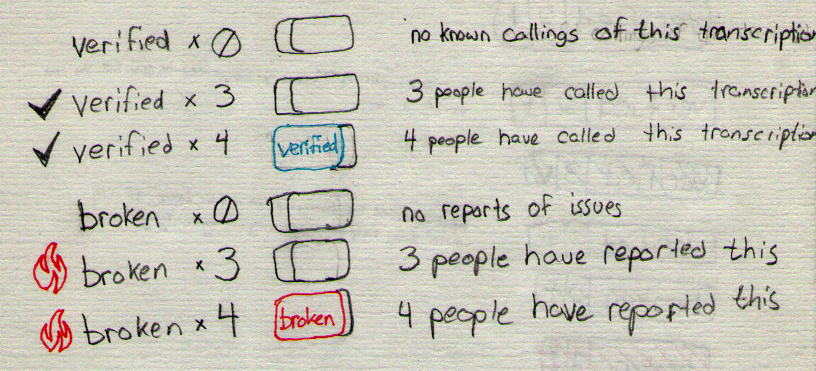 verified x 0 no known callings of this transcription
verified x 3 3 people have called this transcription
verified x 4 verified 4 people have called this transcription
broken x 0 no reports of issues
broken x 3 3 people have reported this
broken x 4 broken 4 people have reported this